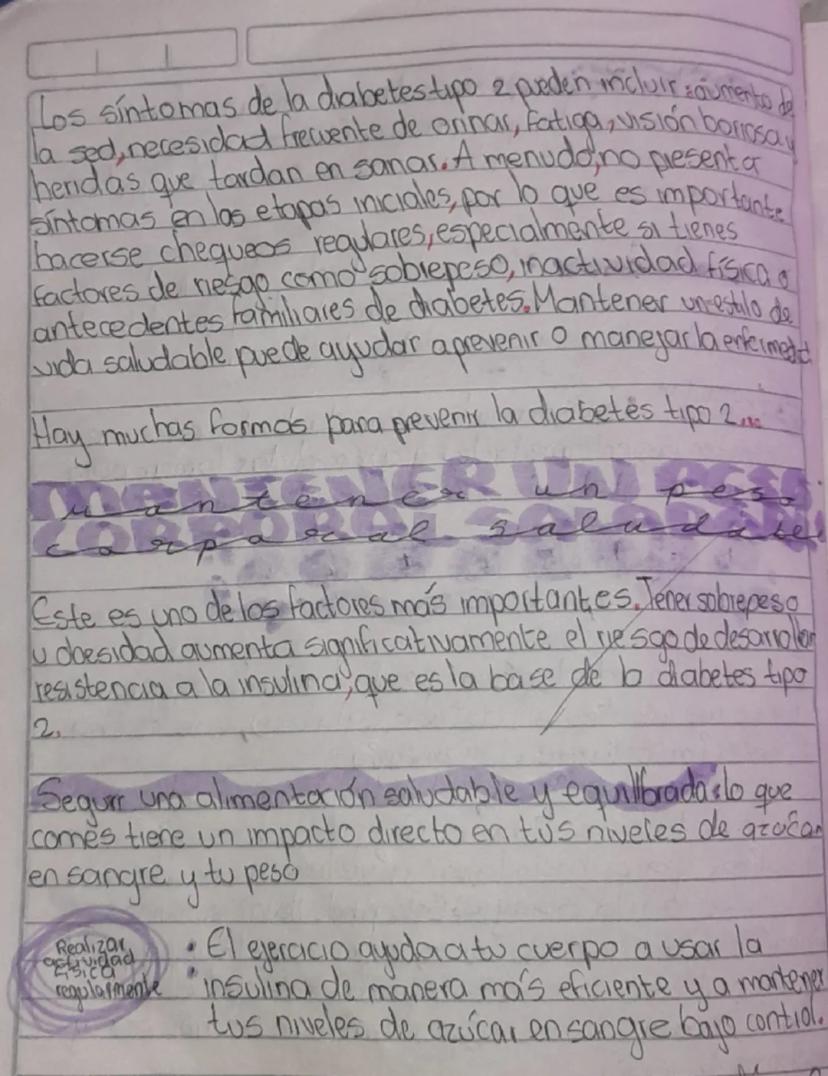 Los síntomas de la diabetes tipo 2 pueden incluir: aumento de
la sed, necesidad frecuente de orinar, fatiga, visión borrosa y
heridas que tardan en sanar. A menudo, no presenta
síntomas en las etapas iniciales, por lo que es importante
hacerse chequeos regulares, especialmente si tienes
factores de riesgo como sobrepeso, inactividad física o
antecedentes familiares de diabetes. Mantener un estilo de
vida saludable puede ayudar a prevenir o manejar la enfermedad
Hay muchas formas para prevenir la diabetes tipo 2...
MANTENER UN PESO
mantener un peso
CORPORAL
corporal saludable
Este es uno de los factores más importantes. Tener sobrepeso
u obesidad aumenta significativamente el riesgo de desarrollar
resistencia a la insulina, que es la base de la diabetes tipo
2.
Seguir una alimentación saludable y equilibrada: lo que
comes tiene un impacto directo en tus niveles de azúcar
en sangre y tu peso
Realizar
actividad
física
regularmente
• El ejercicio ayuda a tu cuerpo a usar la
• insulina de manera más eficiente y a mantener
tus niveles de azúcar en sangre bajo control.